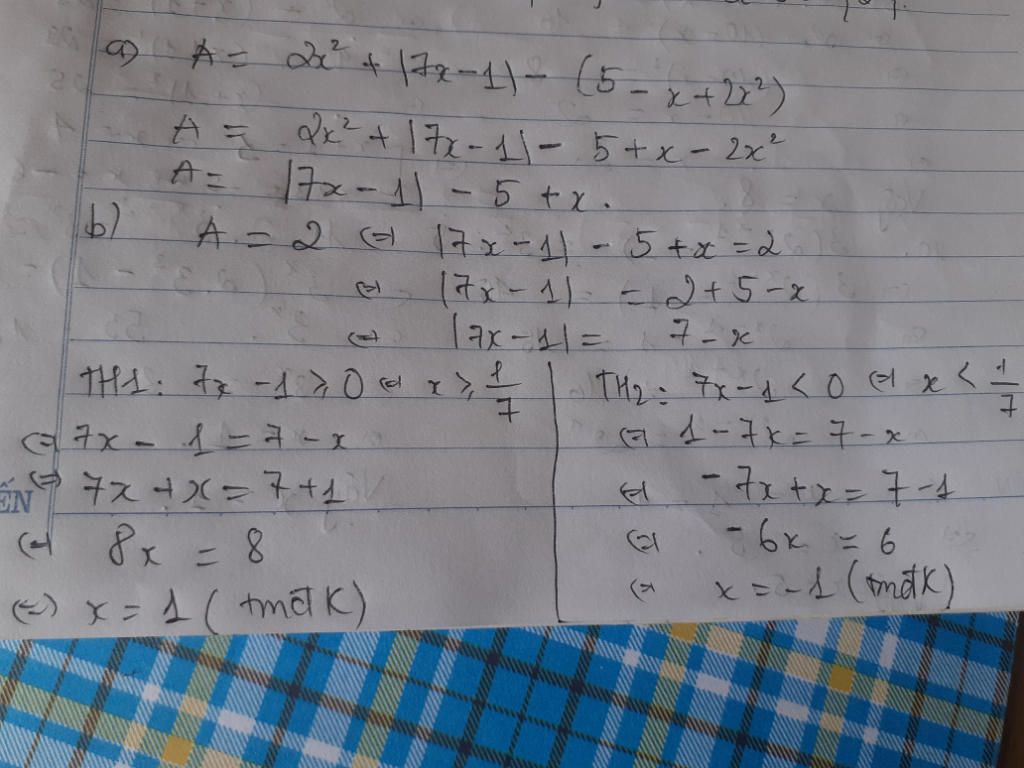 a) A = 2x² + |7x - 1| - (5 - x + 2x²)
A = 2x² + |7x - 1| - 5 + x - 2x²
A = |7x - 1| - 5 + x.
b) A = 2 ⇔ |7x - 1| - 5 + x = 2
⇔ |7x - 1| = 2 + 5 - x
⇔ |7x - 1| = 7 - x
TH1: 7x - 1 ≥ 0 ⇔ x ≥ 1/7
⇔ 7x - 1 = 7 - x
⇔ 7x + x = 7 + 1
⇔ 8x = 8
⇔ x = 1 (tmđK)
TH2: 7x - 1 < 0 ⇔ x < 1/7
⇔ 1 - 7x = 7 - x
⇔ - 7x + x = 7 - 1
⇔ - 6x = 6
⇔ x = - 1 (tmđK)
ẾN